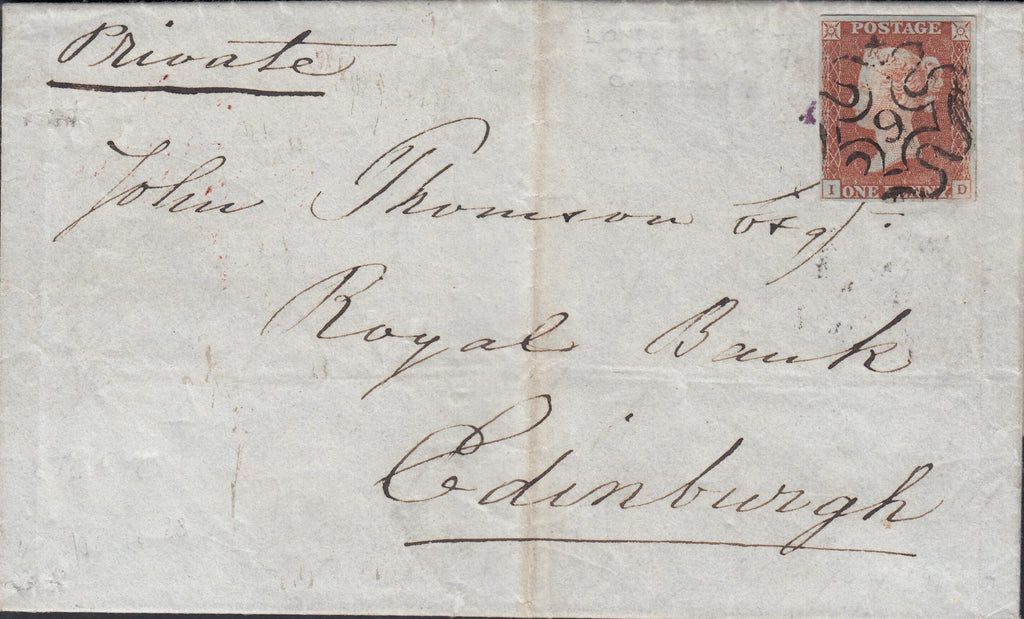 Private
POSTAGE
9
I ONE PENNY D
John Thomson Esqr.
Royal Bank
Edinburgh